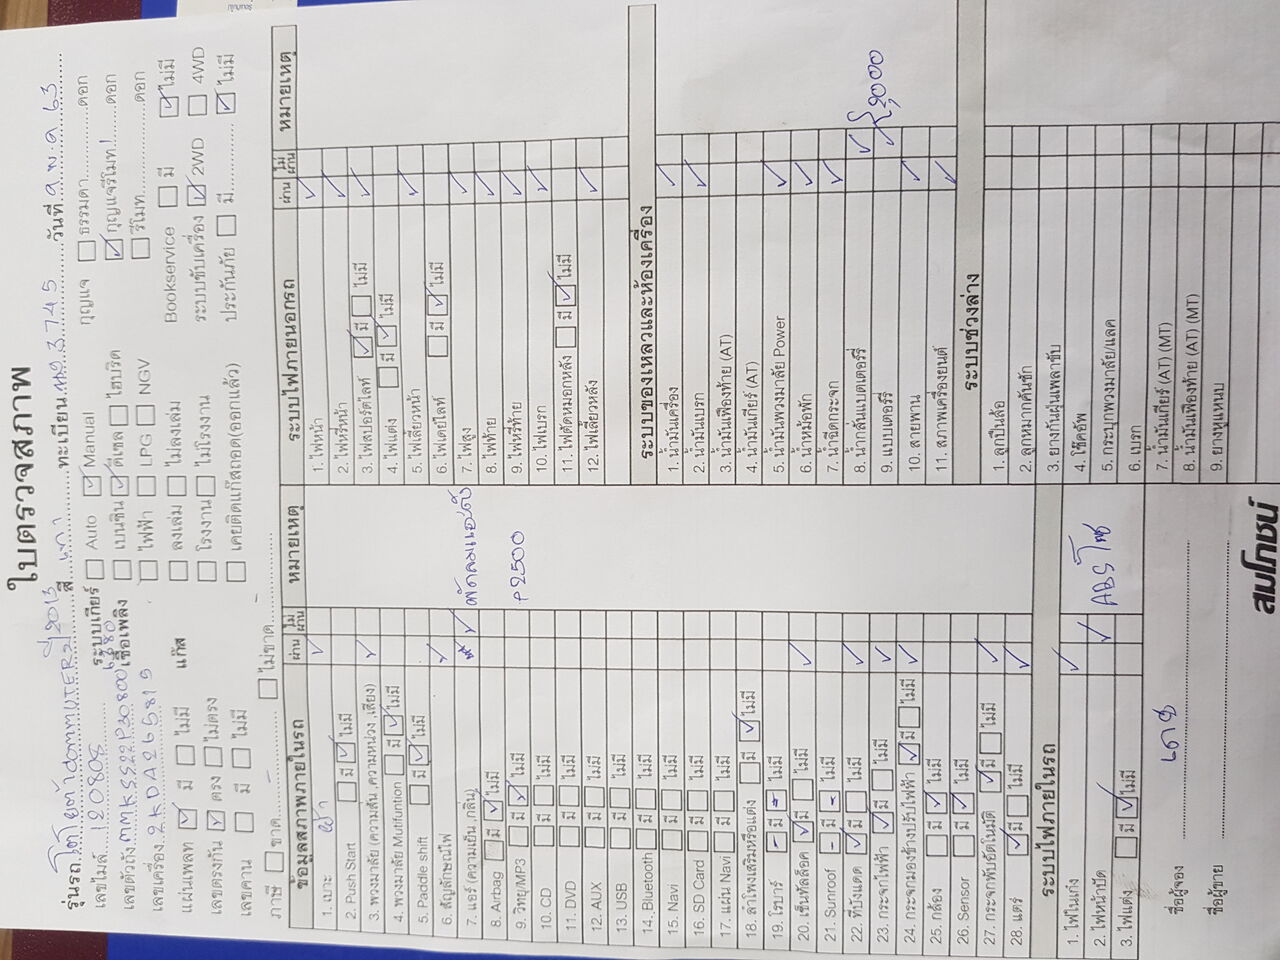 ใบตรวจสภาพ
รุ่นรถ โตโยต้า COMMUTER ปี 2013 สี เทา ทะเบียน 3745 วันที่ 9 พ.ค 63
เลขไมล์ 120808 ระบบเกียร์ Auto Manual กุญแจ ธรรมดา ดอก
เลขตัวถัง เชื้อเพลิง เบนซิน ดีเซล ไฮบริด กุญแจรีโมท ดอก
เลขเครื่อง 2KDA ไฟฟ้า LPG NGV รีโมท ดอก
แผ่นเพลท มี ไม่มี แก๊ส ลงเล่ม ไม่ลงเล่ม Bookservice มี ไม่มี
เลขตรงกัน ตรง ไม่ตรง โรงงาน ไม่โรงงาน ระบบขับเครื่อง 2WD 4WD
เลขคาน มี ไม่มี เคยติดแก๊สถอด(ออกแล้ว) ประกันภัย มี ไม่มี
ภาษี ขาด ไม่ขาด
ข้อมูลสภาพภายในรถ ผ่าน ไม่ผ่าน หมายเหตุ
1. เบาะ ผ้า
2. Push Start มี ไม่มี
3. พวงมาลัย (ความสั่น ,ความหน่วง ,เสียง)
4. พวงมาลัย Mutifuntion มี ไม่มี
5. Paddle shift มี ไม่มี
6. สัญลักษณ์ไฟ
7. แอร์ (ความเย็น ,กลิ่น)
8. Airbag มี ไม่มี
9. วิทยุ/MP3 มี ไม่มี P2500
10. CD มี ไม่มี
11. DVD มี ไม่มี
12. AUX มี ไม่มี
13. USB มี ไม่มี
14. Bluetooth มี ไม่มี
15. Navi มี ไม่มี
16. SD Card มี ไม่มี
17. แผ่น Navi มี ไม่มี
18. ลำโพงเสริมหรือแต่ง มี ไม่มี
19. โรบาร์ มี ไม่มี
20. เซ็นทัลล็อค มี ไม่มี
21. Sunroof มี ไม่มี
22. ที่บังแดด มี ไม่มี
23. กระจกไฟฟ้า มี ไม่มี
24. กระจกมองข้างปรับไฟฟ้า มี ไม่มี
25. กล้อง มี ไม่มี
26. Sensor มี ไม่มี
27. กระจกพับอัตโนมัติ มี ไม่มี
28. แตร มี ไม่มี
ระบบไฟภายในรถ
1. ไฟในเก๋ง
2. ไฟหน้าปัด ABS โชว์
3. ไฟแต่ง มี ไม่มี
ชื่อผู้จอง เดช
ชื่อผู้ขาย
สมโภชน์
ระบบไฟภายนอกรถ ผ่าน ไม่ผ่าน หมายเหตุ
1. ไฟหน้า
2. ไฟหรี่หน้า
3. ไฟสปอร์ตไลท์ มี ไม่มี
4. ไฟแต่ง มี ไม่มี
5. ไฟเลี้ยวหน้า
6. ไฟเดย์ไลท์ มี ไม่มี
7. ไฟสูง
8. ไฟท้าย
9. ไฟหรี่ท้าย
10. ไฟเบรก
11. ไฟตัดหมอกหลัง มี ไม่มี
12. ไฟเลี้ยวหลัง
ระบบของเหลวและห้องเครื่อง
1. น้ำมันเครื่อง
2. น้ำมันเบรก
3. น้ำมันเฟืองท้าย (AT)
4. น้ำมันเกียร์ (AT)
5. น้ำมันพวงมาลัย Power
6. น้ำหม้อพัก
7. น้ำฉีดกระจก
8. น้ำกลั่นแบตเตอร์รี่
9. แบตเตอร์รี่
10. สายพาน
11. สภาพเครื่องยนต์
ระบบช่วงล่าง
1. ลูกปืนล้อ
2. ลูกหมากคันชัก
3. ยางกันฝุ่นเพลาขับ
4. โช๊คอัพ
5. กระปุกพวงมาลัย/แลค
6. เบรก
7. น้ำมันเกียร์ (AT) (MT)
8. น้ำมันเฟืองท้าย (AT) (MT)
9. ยางหูแหนบ